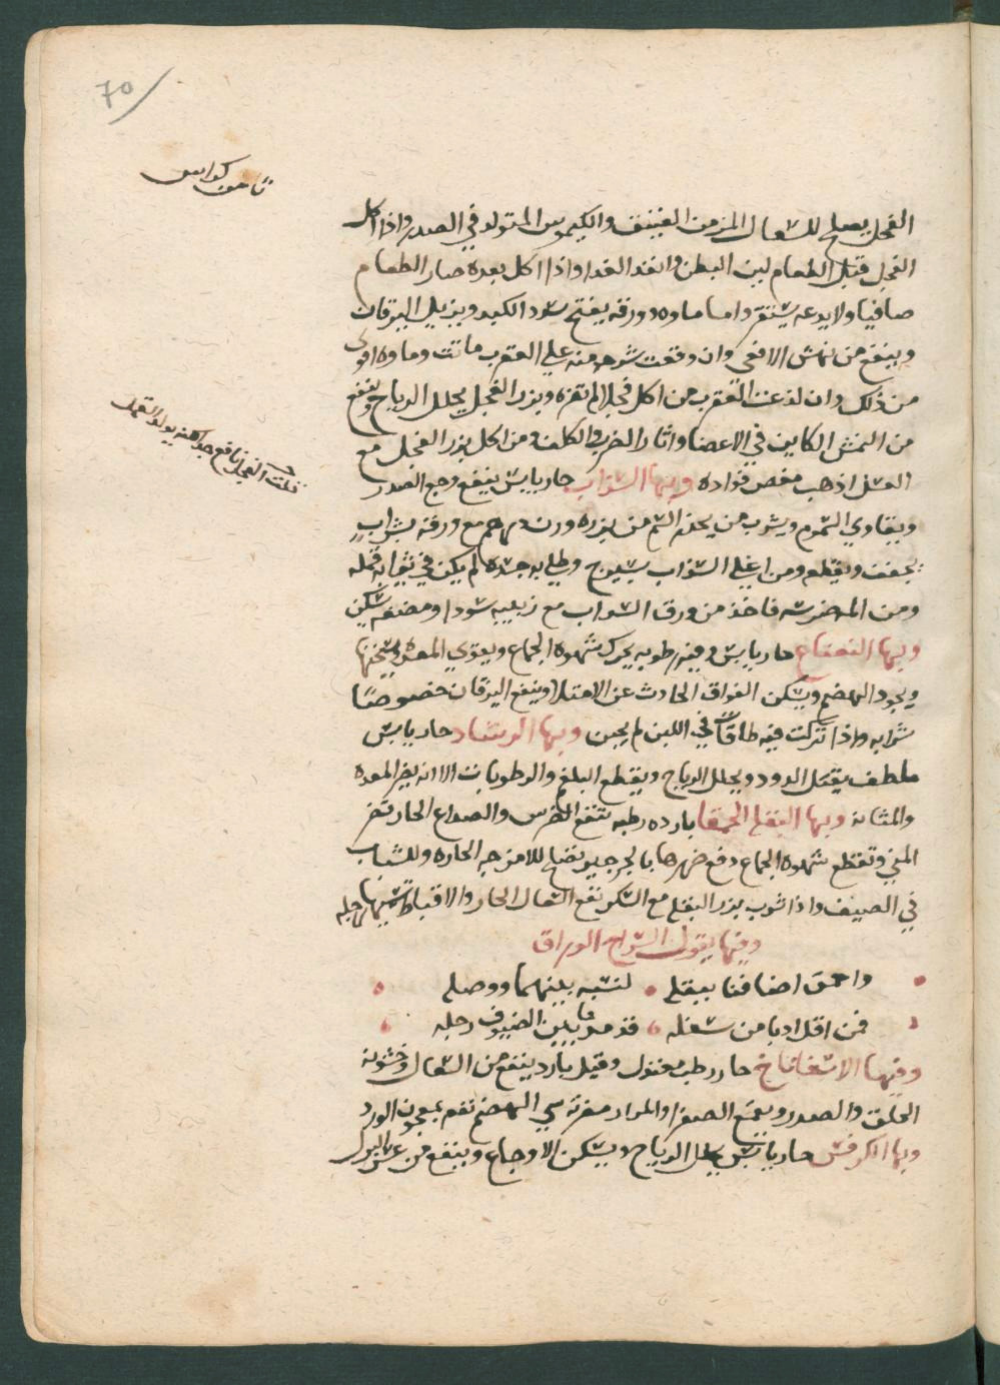 70
ثامن كراس
الفجل يصلح للسعال المزمن العتيق والكيموس المتولد في الصدر واذا اكل
الفجل قبل الطعام لين البطن وانفذ الغدا واذا اكل بعده صار الطعام
صافيا ولا يدعه يستقر واما ماوه وورقه يفتح سدد الكبد ويزيل اليرقان
وينفع من نهش الافعى وان وقعت منه على العقرب ماتت وماوه اقوى
من ذلك وان لدغت العقرب من اكل فجلا لم تضره وبزر الفجل يحلل الرياح وينفع
من النمش الكاين في الاعضا واثار الضرب والكلف ومن اكل بزر الفجل مع
العسل اذهب مغص فواده وبها السداب حار يابس ينفع وجع الصدر
ويقاوي السموم ويشرب من يحذر السم من بزره وزن درهم مع ورقه بشراب
يجفف ويقطع ومن اغلي السداب بشيرج وطلي به جسده لم يكن في ثيابه قمله
ومن المه ضرسه فاخذ من ورق السداب مع زبيبه سودا ومضغه سكن
وبها النعناع حار يابس وفيه رطوبه يحرك شهوة الجماع ويقوي المعده ويسخنها
ويجود الهضم ويسكن الفواق الحادث عن الامتلا وينفع اليرقان خصوصا
شرابه واذا تركت فيه طاقات في اللبن لم يجبن وبها الرشاد حار يابس
ملطف يقتل الدود ويحلل الرياح ويقطع البلغم والرطوبات الا انه يضر المعده
والمثانه وبها البقله الحمقا بارده رطبه تنفع الضرس والصداع الحار تضر
المني وتقطع شهوة الجماع دفع ضررها بالجرجير تصلح للامزجه الحاره وللشباب
في الصيف واذا شوب بزر البقله مع السكر نفع السعال الحار والاقباط تسميها رجله
وفيها يقول السراج الوراق
واحمق اضافنا ببقله لنسبه بينهما ووصله
فمن اقل ادبا من سفله قدم ما بين الضيوف رجله
وفيها الاسفاناخ حار رطب معتدل وقيل بارد ينفع من السعال وخشونة
الحلق والصدر ويقمع الصفرا والمراد مضرته سي الهضم تقم بمعجون الورد
وبها الكرفس حار يابس يحلل الرياح ويسكن الاوجاع وينفع من عسر البول
قلت الفجل نافع جدا لكنه يولد القمل